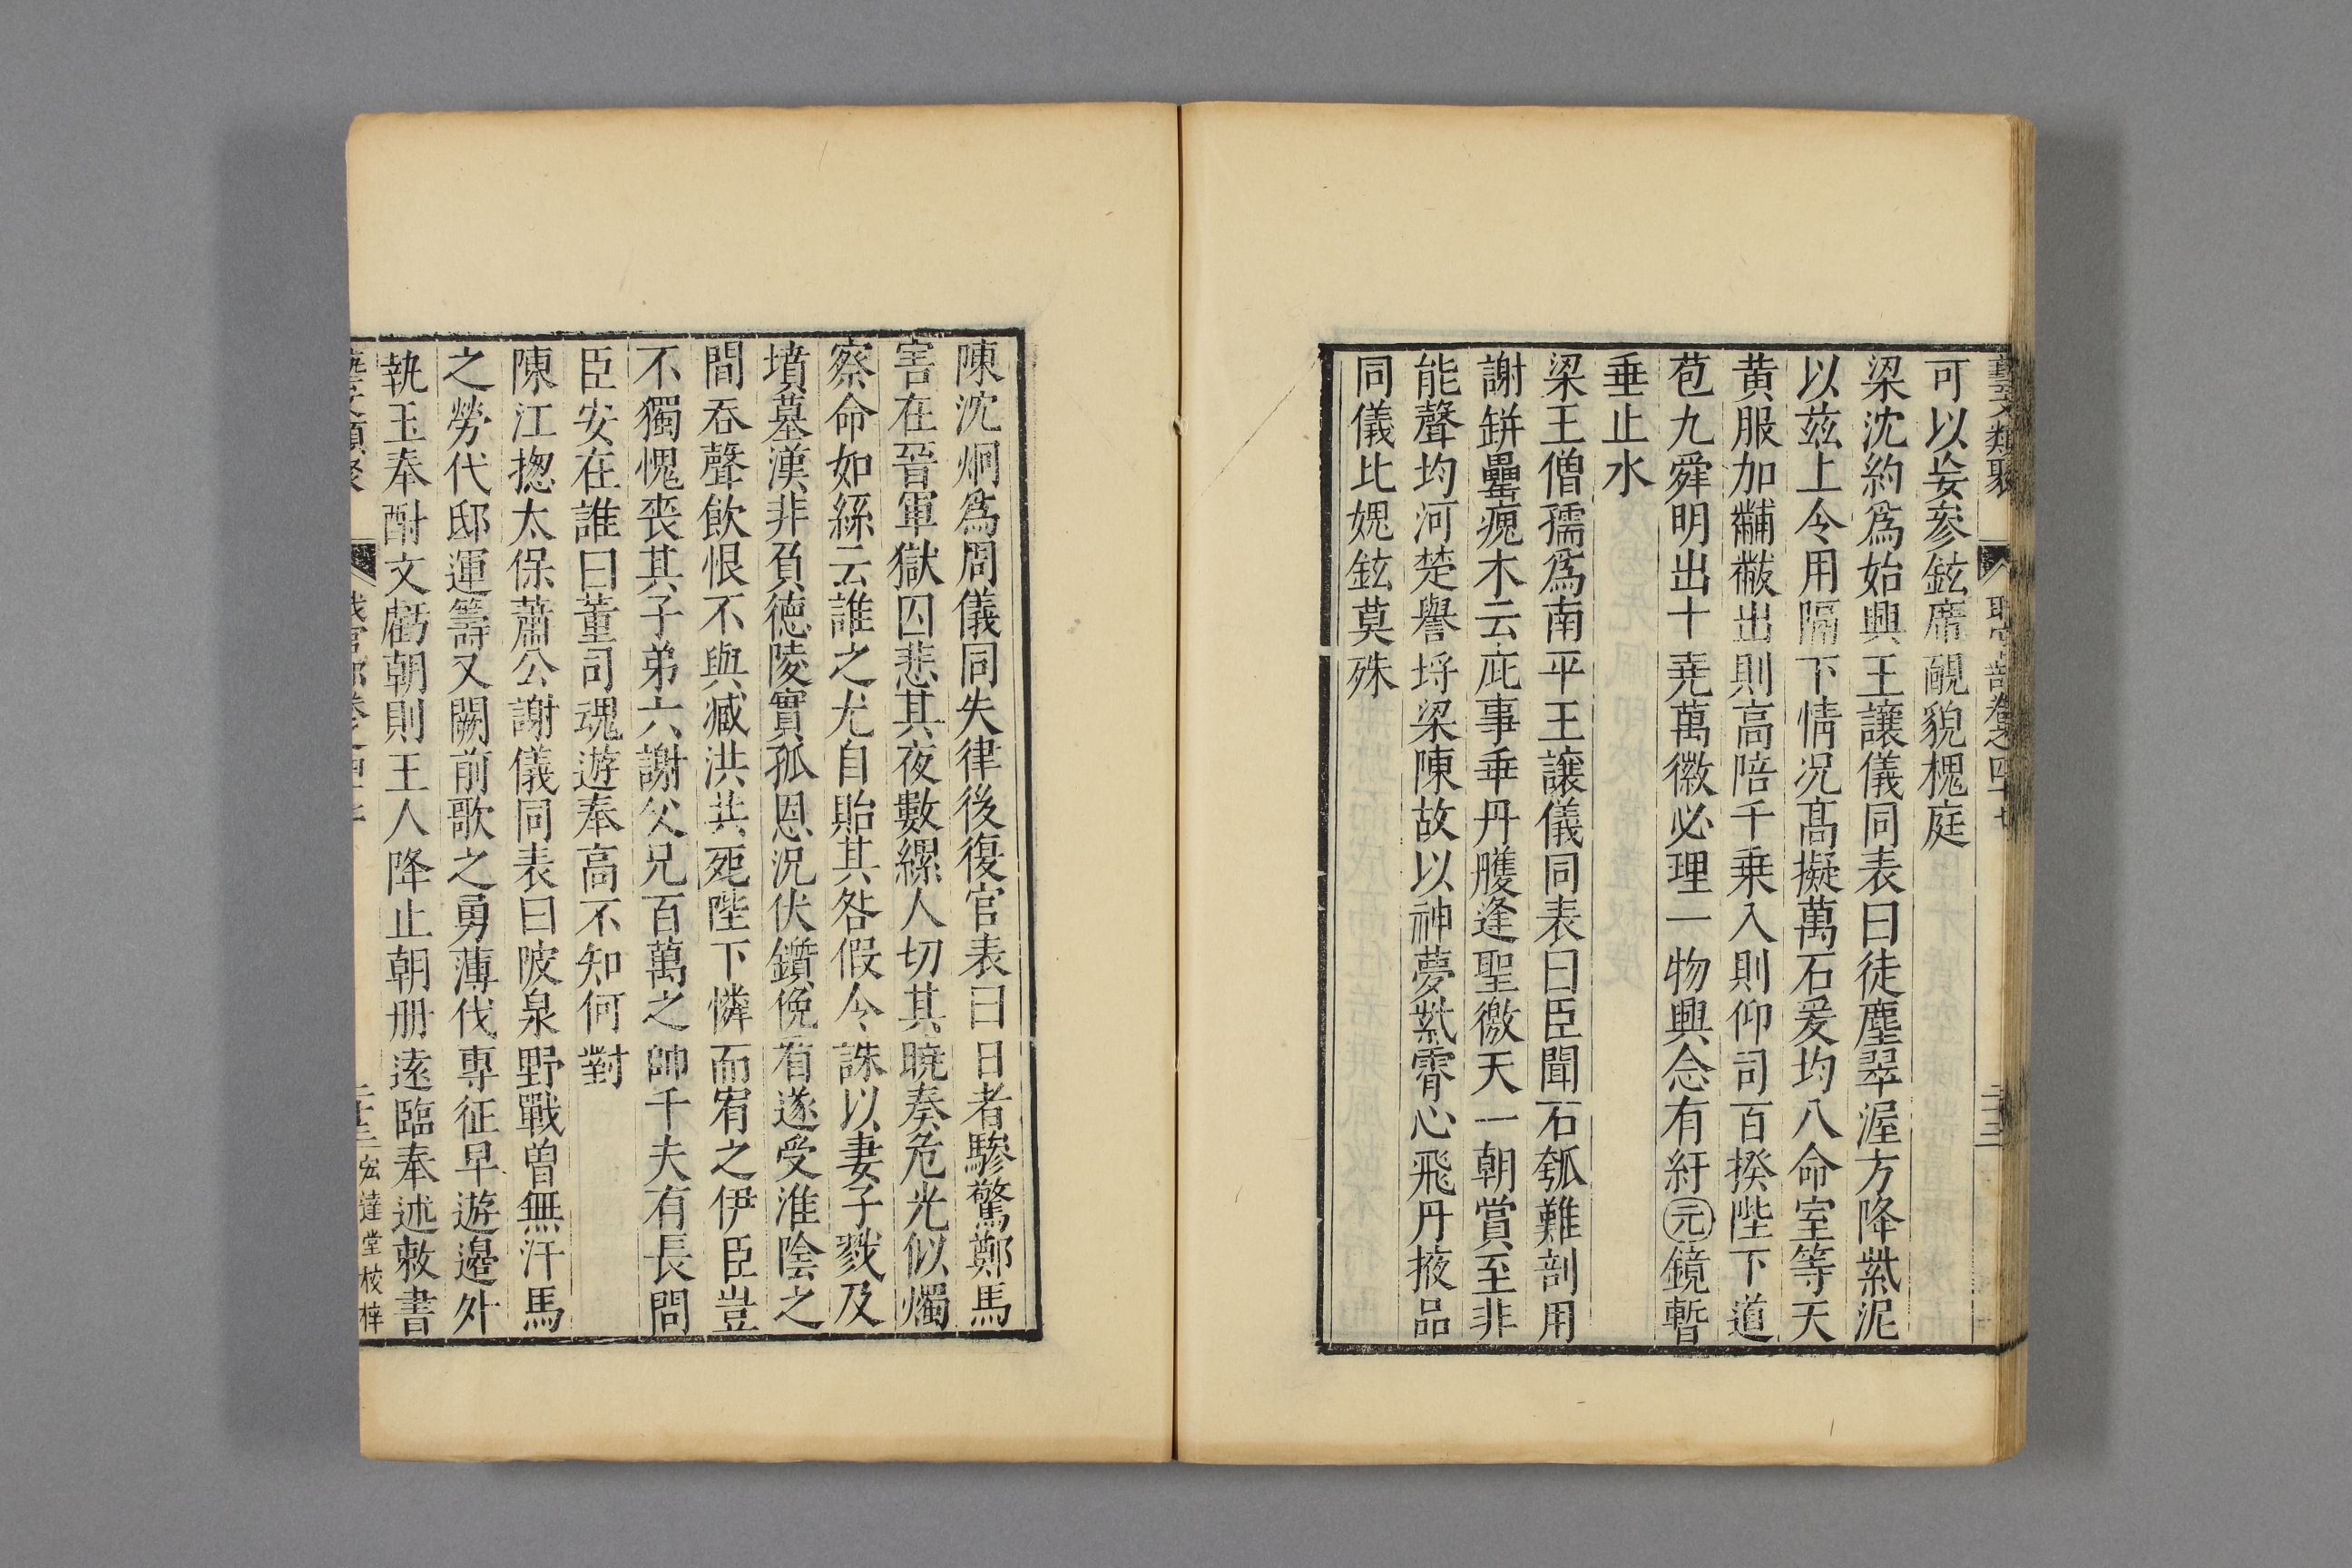 藝文類聚 職官部卷之四十七 二十三
可以妄參鉉席靦貌槐庭
梁沈約爲始興王讓儀同表曰徒塵翠渥方降紫泥
以兹上令用隔下情况髙擬萬石爰均八命室等天
黄服加黼黻出則高陪千乗入則仰司百揆陛下道
苞九舜明出十堯萬徽必理一物興念有紆元鏡暫
垂止水
梁王僧孺爲南平王讓儀同表曰臣聞石瓠難剖用
謝缾罍瘣木云庇事垂丹雘逢聖徼天一朝賞至非
能聲均河楚譽埒梁陳故以神夢紫霄心飛丹掖品
同儀比媿鉉莫殊
陳沈炯爲周儀同失律後復官表曰日者驂驚鄭馬
害在晉軍獄囚悲其夜數縲人切其曉奏危光似燭
察命如絲云誰之尤自貽其咎假令誅以妻子戮及
墳墓漢非負德陵實孤恩況伏鑕俛首遂受淮陰之
間吞聲飲恨不與臧洪共死陛下憐而宥之伊臣豈
不獨愧喪其子弟六謝父兄百萬之帥千夫有長問
臣安在誰曰董司魂遊奉高不知何對
陳江揔太保蕭公謝儀同表曰阪泉野戰曽無汗馬
之勞代邸運籌又闕前歌之勇薄伐專征早遊邊外
執玉奉酎文虧朝則王人降止朝册遠臨奉述敕書
藝文類聚 職官部卷之四十七 二十三 宏達堂校梓